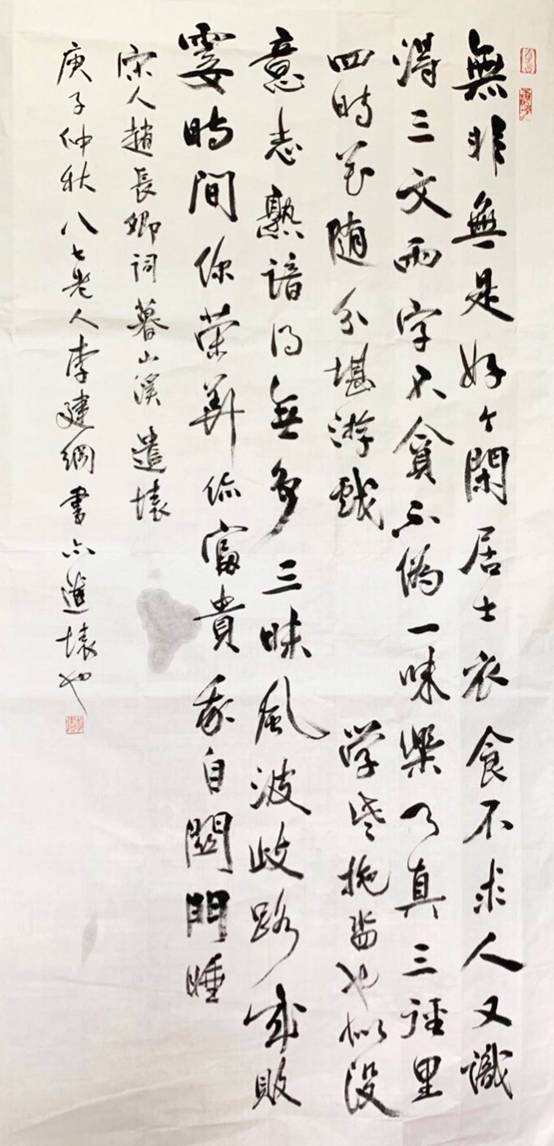 無非無是好个閑居士衣食不求人又識
得三文兩字不貪不偽一味樂乃真三徑里
四時花随分堪游戲 学些拖沓也似没
意志熟諳得無多三昧風波歧路成敗
霎時间你荣華你富貴我自関門睡
宋人趙長卿詞暮山溪遣懷
庚子仲秋八七老人李建綱書亦遣懷也